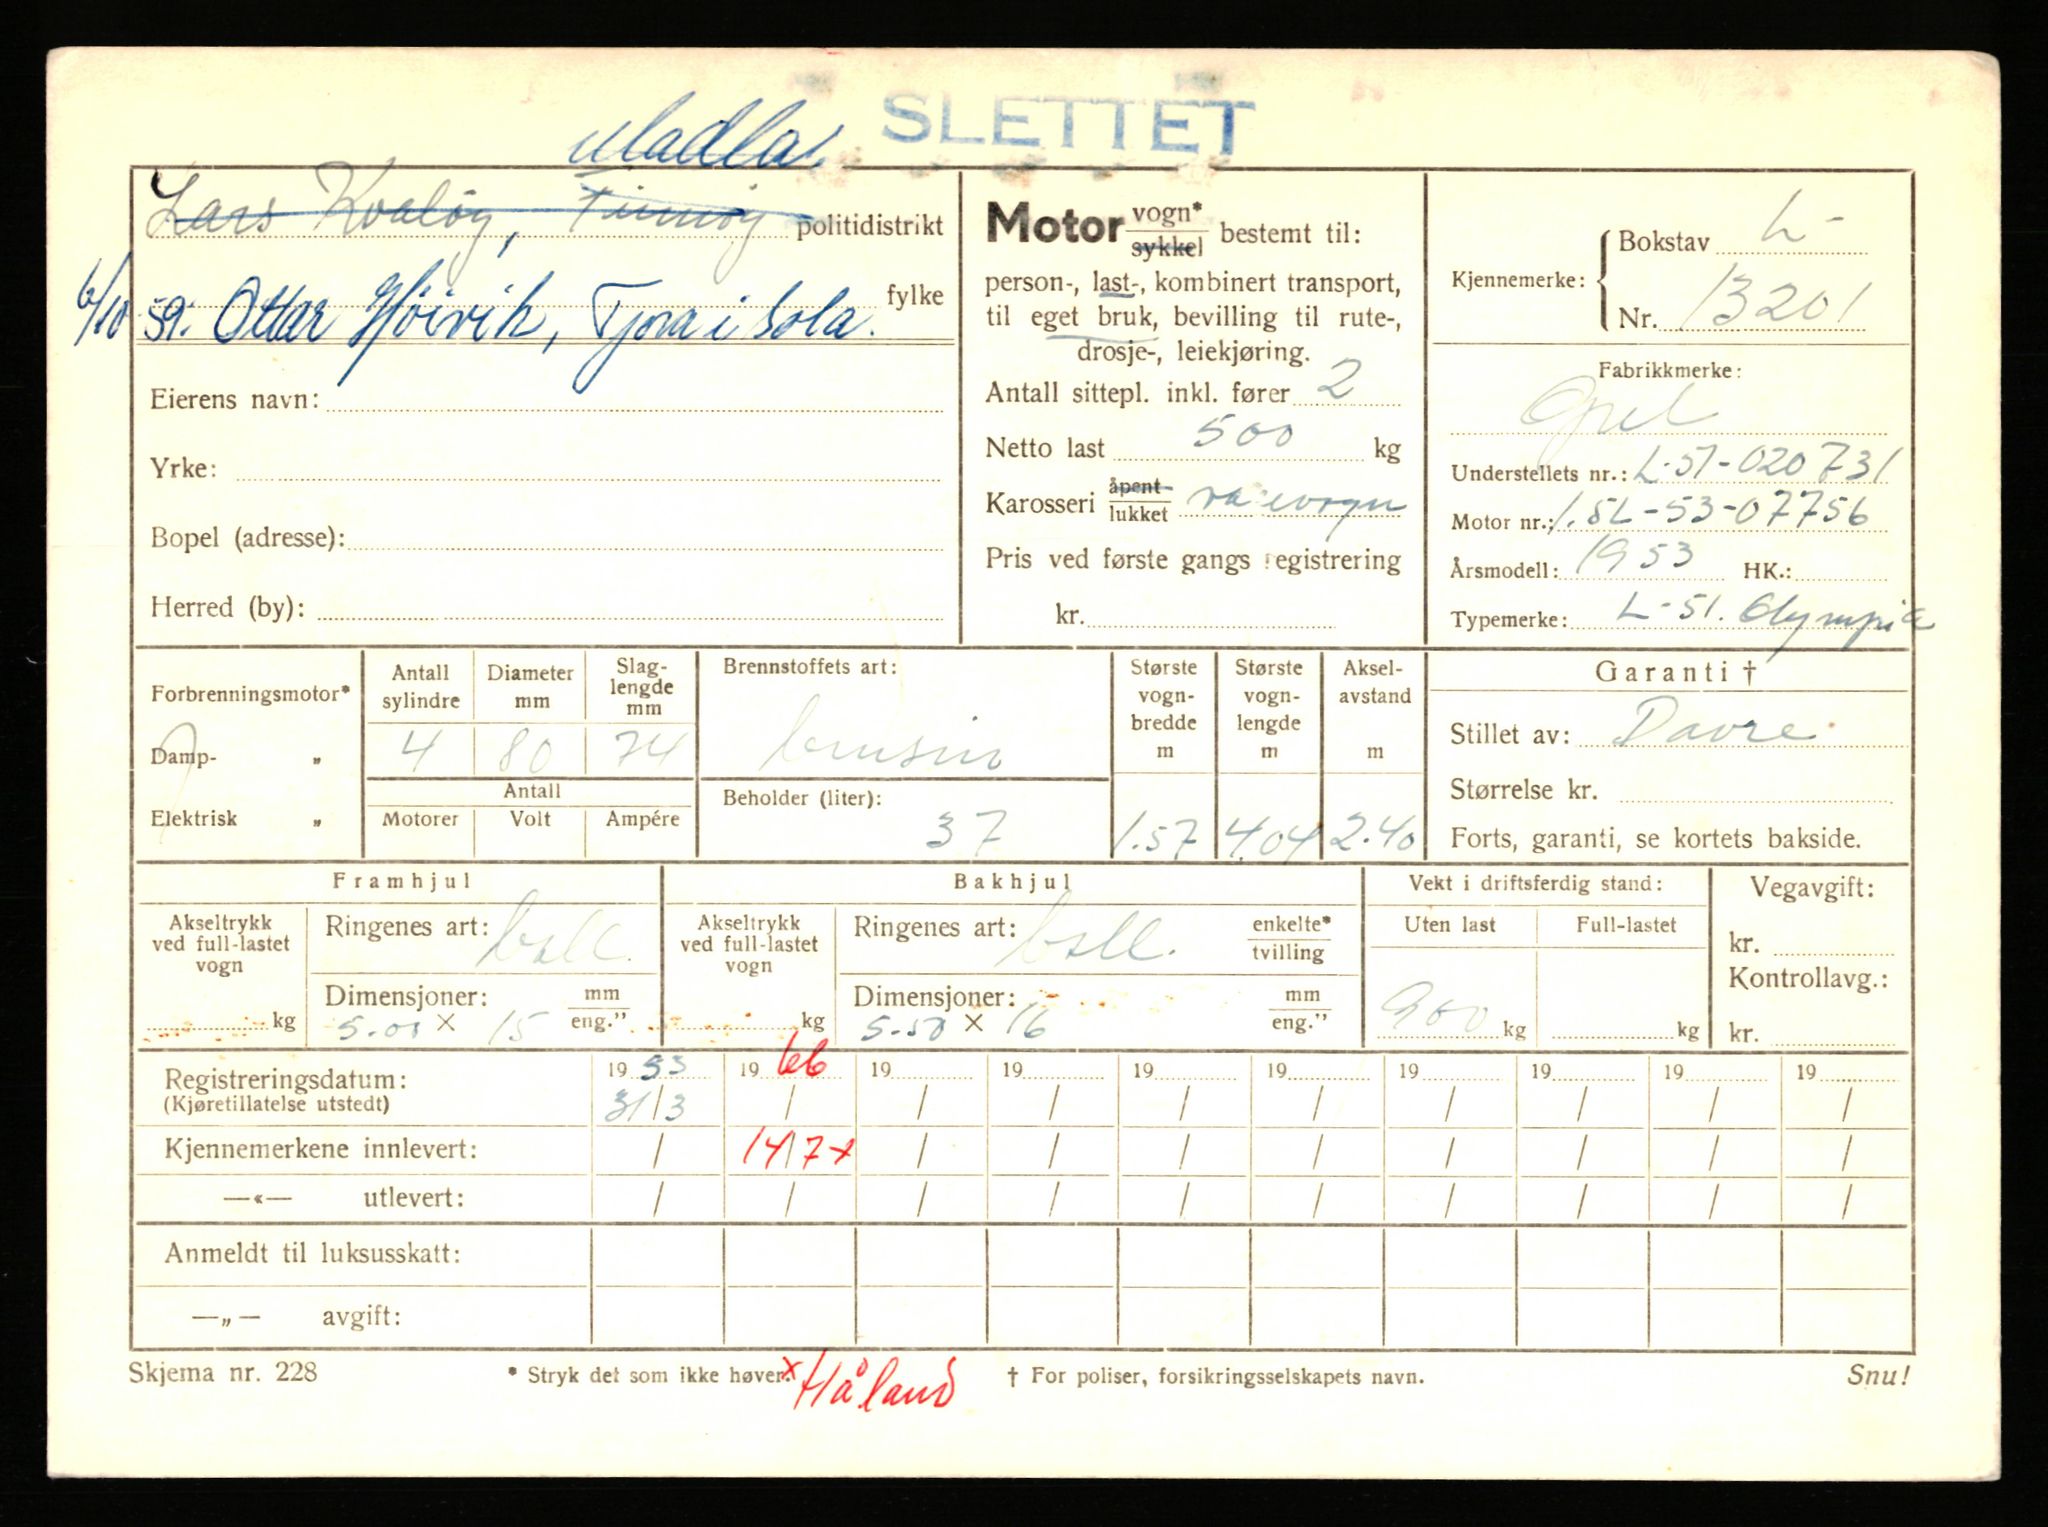 SLETTET
Madla
Lars Kvaløy, Finnøy politidistrikt
6/10 59. Ottar Høivik, Tjora i Sola. fylke
Eierens navn:
Yrke:
Bopel (adresse):
Herred (by):
Motor vogn* / sykkel bestemt til:
person-, last-, kombinert transport,
til eget bruk, bevilling til rute-,
drosje-, leiekjøring.
Antall sittepl. inkl. fører 2
Netto last 500 kg
Karosseri åpent / lukket varevogn
Pris ved første gangs registrering
kr.
Kjennemerke: Bokstav L-
Nr. 13201
Fabrikkmerke:
Opel
Understellets nr.: L-51-020731
Motor nr.: 1.5L-53-07756
Årsmodell: 1953 HK.:
Typemerke: L-51. Olympia
Forbrenningsmotor*
Damp- „
Elektrisk „
Antall sylindre Diameter mm Slag-lengde mm
4 80 74
Antall
Motorer Volt Ampére
Brennstoffets art:
bensin
Beholder (liter):
37
Største vogn-bredde m Største vogn-lengde m Aksel-avstand m
1.57 4.04 2.40
Garanti †
Stillet av: Davre
Størrelse kr.
Forts, garanti, se kortets bakside.
Framhjul
Akseltrykk ved full-lastet vogn
kg
Ringenes art: ball.
Dimensjoner: mm / eng."
5-00 × 15
Bakhjul
Akseltrykk ved full-lastet vogn
kg
Ringenes art: ball. enkelte* / tvilling
Dimensjoner: mm / eng."
5-50 × 16
Vekt i driftsferdig stand:
Uten last Full-lastet
900 kg kg
Vegavgift:
kr.
Kontrollavg.:
kr.
Registreringsdatum: 19 53 19 66 19 19 19 19 19 19 19 19
(Kjøretillatelse utstedt) 31/3 / / / / / / / / /
Kjennemerkene innlevert: / 14/7 x / / / / / / / /
—«— utlevert: / / / / / / / / / /
Anmeldt til luksusskatt:
—„— avgift:
Skjema nr. 228 * Stryk det som ikke høver. x Håland † For poliser, forsikringsselskapets navn. Snu!